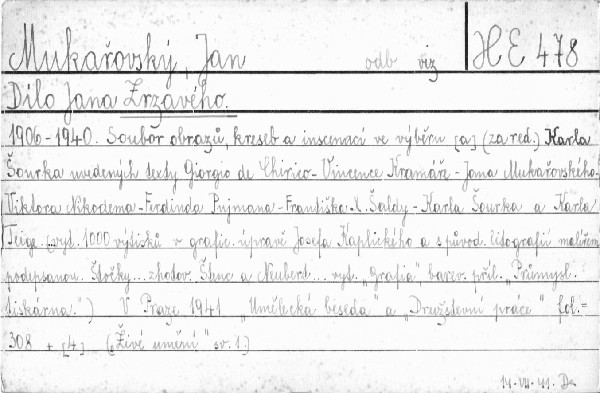 Mukařovský, Jan odb viz HE 478
Dílo Jana Zrzavého.
1906-1940. Soubor obrazů, kreseb a inscenací ve výběru [a] (za red.) Karla
Šourka uvedených texty Giorgio de Chirico - Vincence Kramáře - Jana Mukařovského-
Viktora Nikodema - Ferdinda Pujmana - Františka X. Šaldy - Karla Šourka a Karla
Teige. (vyt. 1000 výtisků v grafic. úpravě Josefa Kaplického a s původ. litografií malířem
podepsanou. Štočky... zhotov. Štenc a Neubert... vyt. "Grafia", barev. příl. "Průmysl.
tiskárna".") V Praze 1941 "Umělecká beseda" a "Družstevní práce" fol.=
308 + [4]. ("Živé umění" sv. 1.)
14-VII-41. De